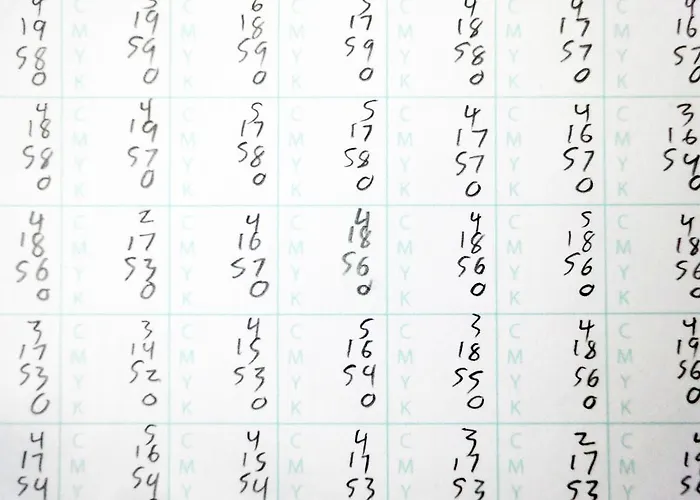 C C 6 C C 4 C C
19 M 19 M 18 M 17 M 18 M 17 M 16
58 Y 59 Y 59 Y 59 Y 58 Y 57 Y 57
0 K 0 K 0 K 0 K 0 K 0 K 0
4 C 4 C 5 C 5 C 4 C 4 C 3
18 M 19 M 17 M 17 M 17 M 16 M 16
58 Y 57 Y 58 Y 58 Y 57 Y 57 Y 54
0 K 0 K 0 K 0 K 0 K 0 K 0
4 C 2 C 4 C 4 C 4 C 5 C 4
18 M 17 M 16 M 18 M 18 M 18 M 18
56 Y 53 Y 57 Y 56 Y 56 Y 56 Y 56
0 K 0 K 0 K 0 K 0 K 0 K 0
3 C 3 C 4 C 5 C 3 C 4 C 4
17 M 14 M 15 M 16 M 18 M 18 M 19
53 Y 52 Y 53 Y 54 Y 55 Y 56 Y 56
0 K 0 K 0 K 0 K 0 K 0 K 0
4 C 5 C 4 C 4 C 3 C 2 C
17 M 16 M 15 M 17 M 17 M 17 M
54 Y 54 Y 54 Y 53 Y 53 Y 53 Y